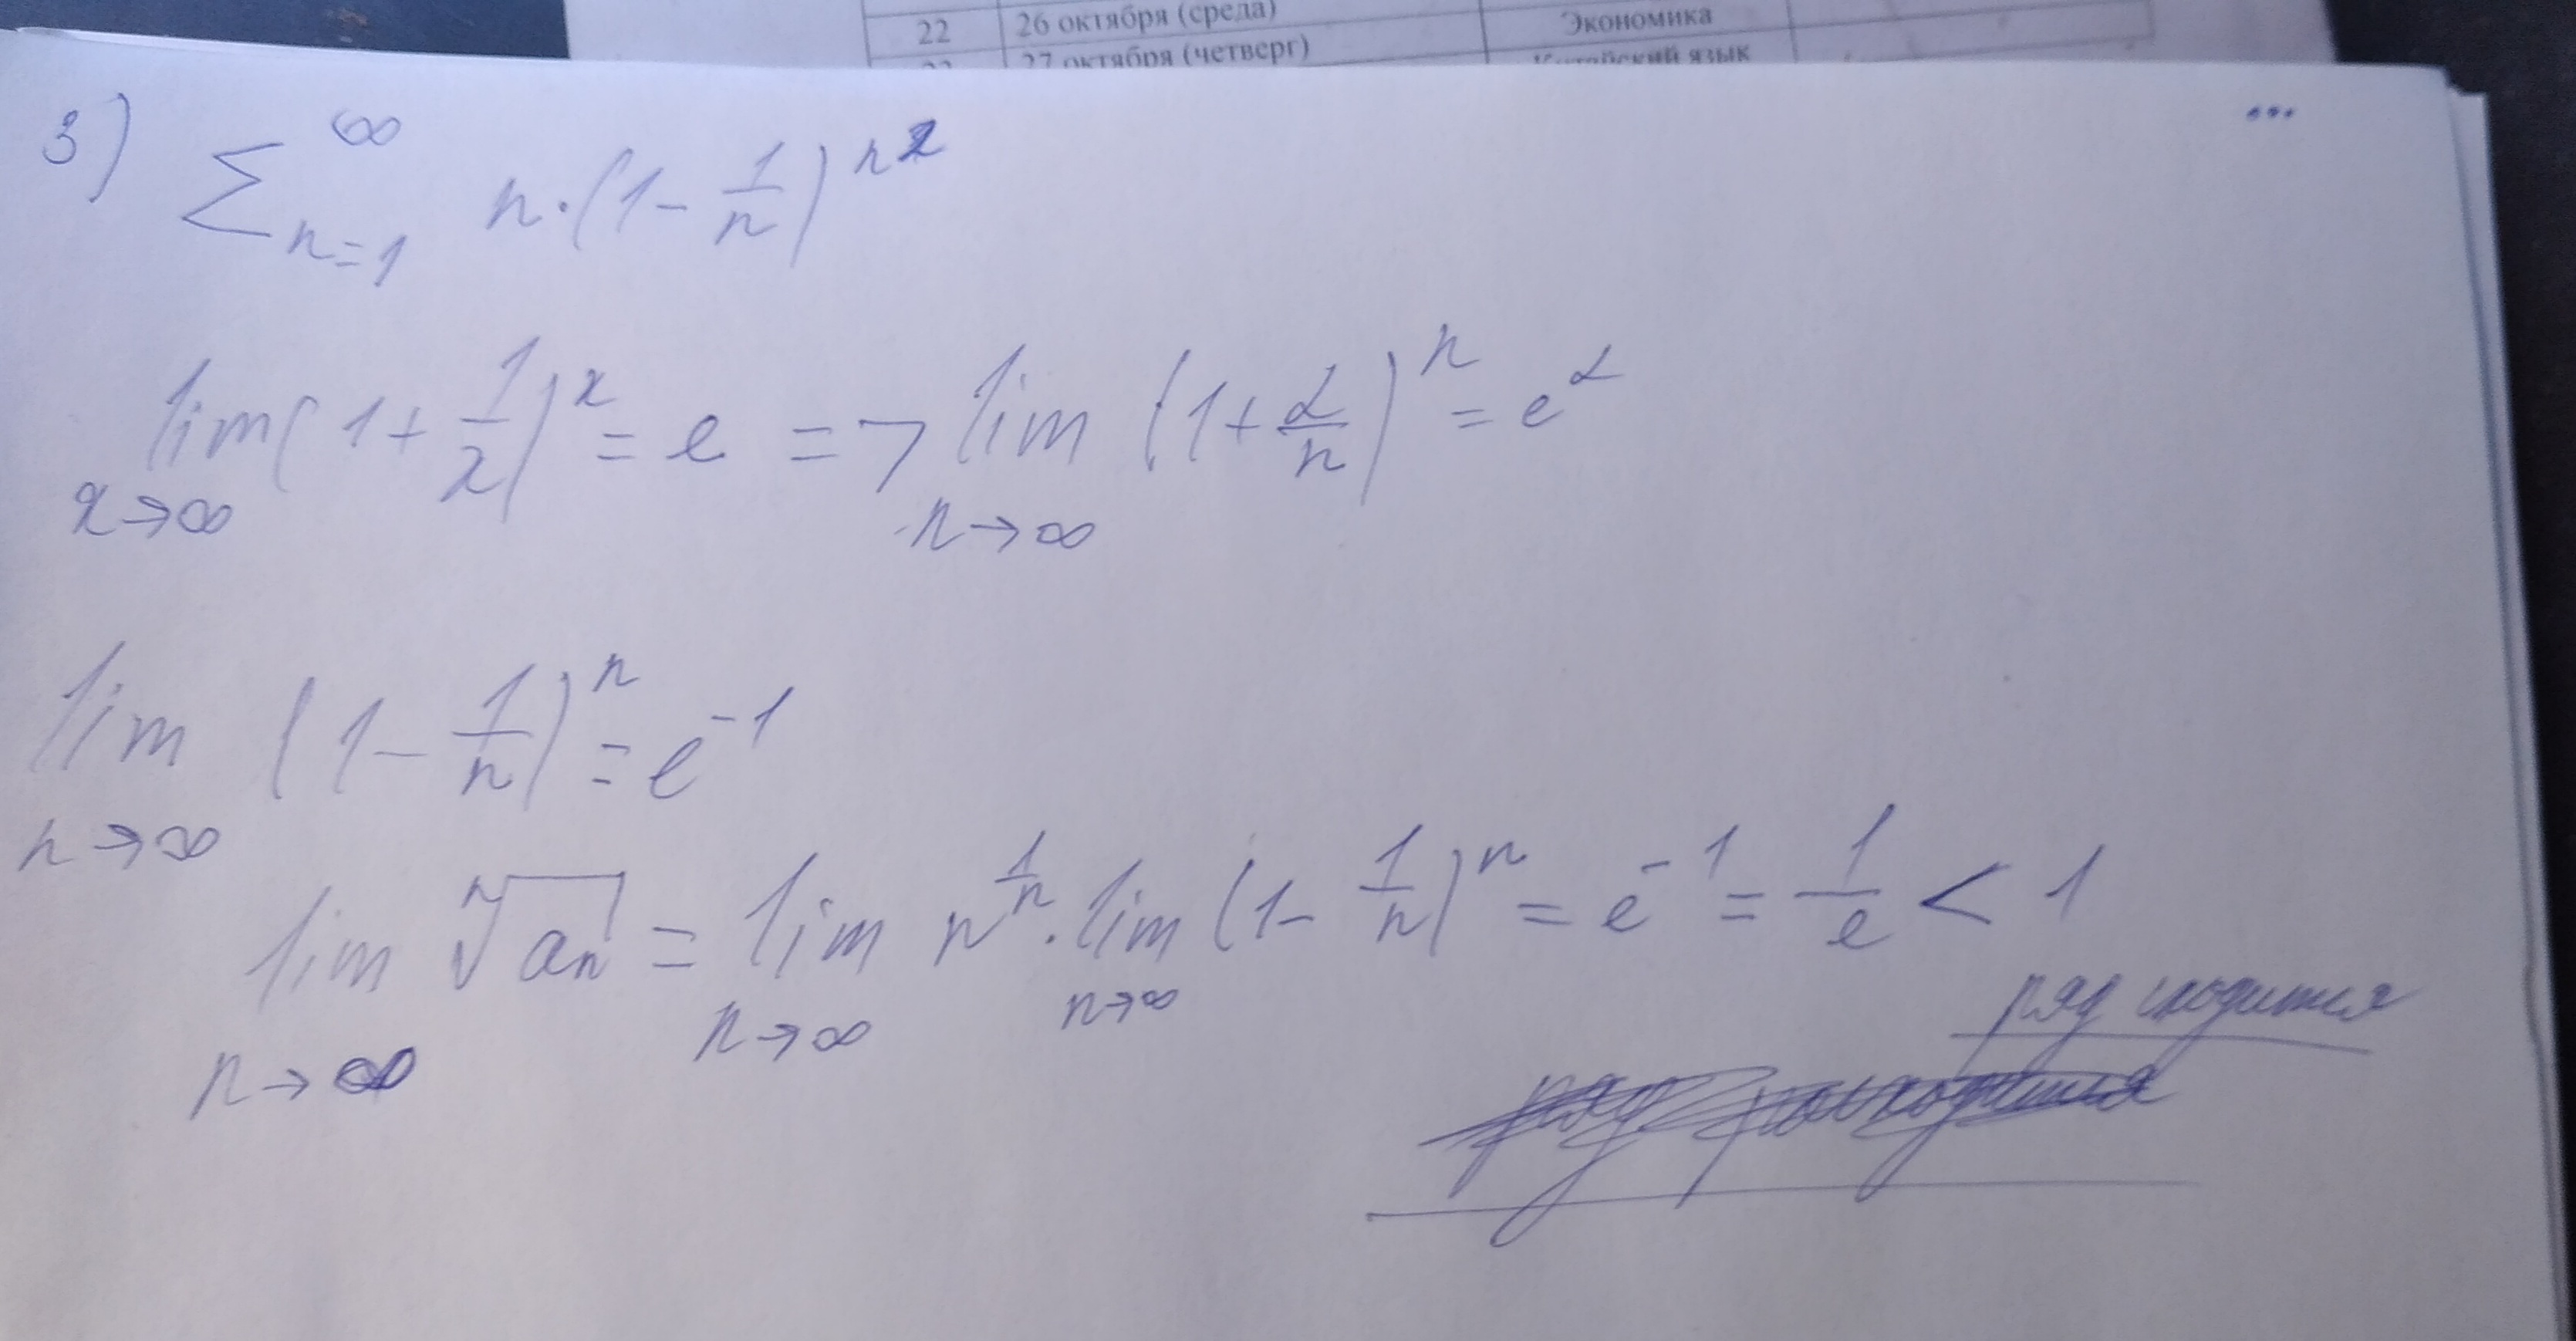 22 26 октября (среда) Экономика
27 октября (четверг) Китайский язык
3) ∑_{n=1}^{∞} n·(1-1/n)^{n^2}
lim_{x→∞} (1+1/x)^x = e => lim_{n→∞} (1+α/n)^n = e^α
lim_{n→∞} (1-1/n)^n = e^{-1}
lim_{n→∞} ⁿ√aₙ = lim_{n→∞} n^{1/n} · lim_{n→∞} (1-1/n)^n = e^{-1} = 1/e < 1
ряд сходится
ряд расходится